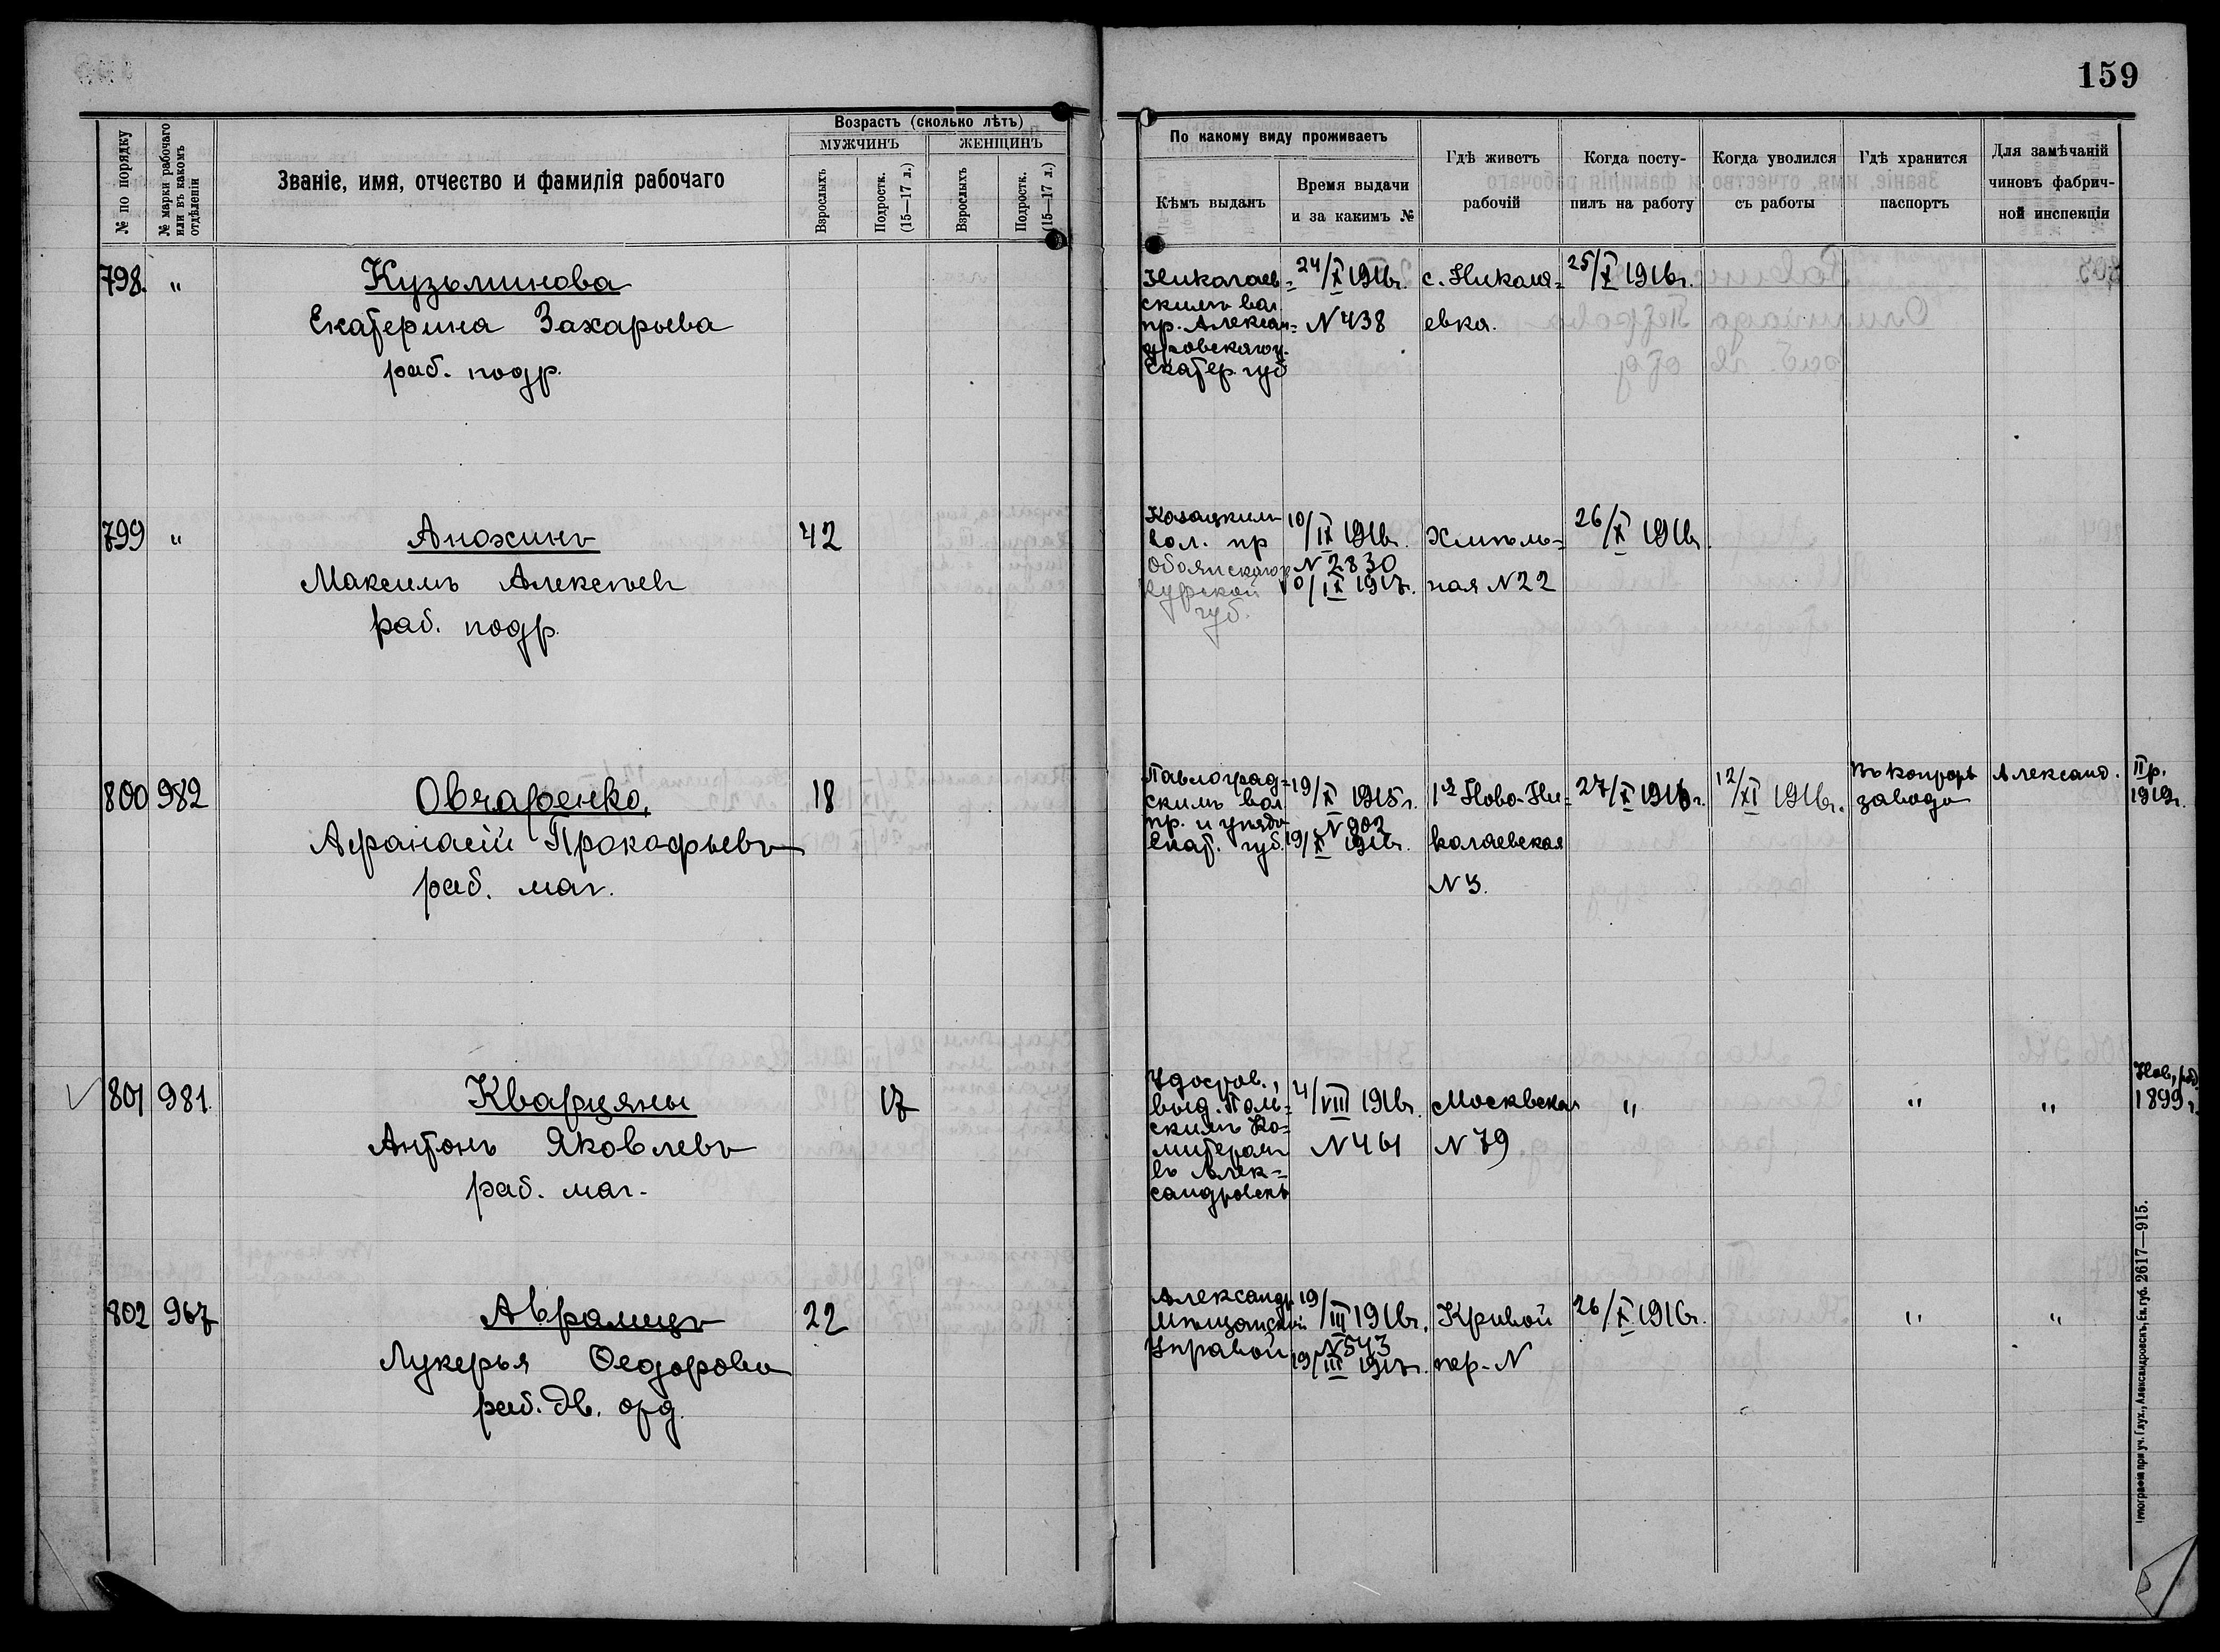 159
№ по порядку
№ марки рабочаго или въ какомъ отдѣленіи
Званіе, имя, отчество и фамилія рабочаго
Возрастъ (сколько лѣтъ)
МУЖЧИНЪ
ЖЕНЩИНЪ
Взрослыхъ
Подростк. (15—17 л.)
Взрослыхъ
Подростк. (15—17 л.)
По какому виду проживаетъ
Кѣмъ выданъ
Время выдачи
и за какимъ №
Гдѣ живетъ
рабочій
Когда посту-
пилъ на работу
Когда уволился
съ работы
Гдѣ хранится
паспортъ
Для замѣчаній
чиновъ фабрич-
ной инспекціи
798. "
Кузьминова
Екатерина Захарьева
раб. подр.
Николаев=
скимъ вол
пр. Алексан=
дровскаго у.
Екатер. губ
24/X 1916г.
N 438
с. Никола=
евка.
25/X 1916г.
799 "
Анохинъ
Максимъ Алексѣев
раб. подр.
42
Казацкимъ
вол. пр
Обоянскаго у
Курской
губ.
10/IX 1916г.
N 2830
10/IX 1917г.
Хмѣль=
ная N 22
26/X 1916г.
800 982
Овчаренко,
Афанасій Прокофьевъ
раб. маг.
18
Павлоград=
скимъ вол
пр. и уѣзда
Екат. губ.
19/X 1915г.
N 902
19/X 1916г.
1ая Ново-Ни=
колаевская
N 3.
27/X 1916г.
12/XI 1916г.
Въ конторѣ
завода
Александ.
Пр.
1919г.
801 981.
Кварцяны
Антонъ Яковлевъ
раб. маг.
17
Удостов.,
выд. Поль=
скимъ Ко=
митетомъ
въ Алек=
сандровскѣ
4/VIII 1916г.
N 461
Московская
N 79
"
"
"
Нов., род
1899г.
802 967
Аврамицъ
Лукерья Ѳедорова
раб. дв. отд.
22
Александр
Мѣщанской
Управой
19/III 1916г.
N 543
19/III 1917г.
Кривой
пер. N
26/X 1916г.
"
"
Типографія при уч. Глух., Александровскъ, Ек. губ. 2617—915.